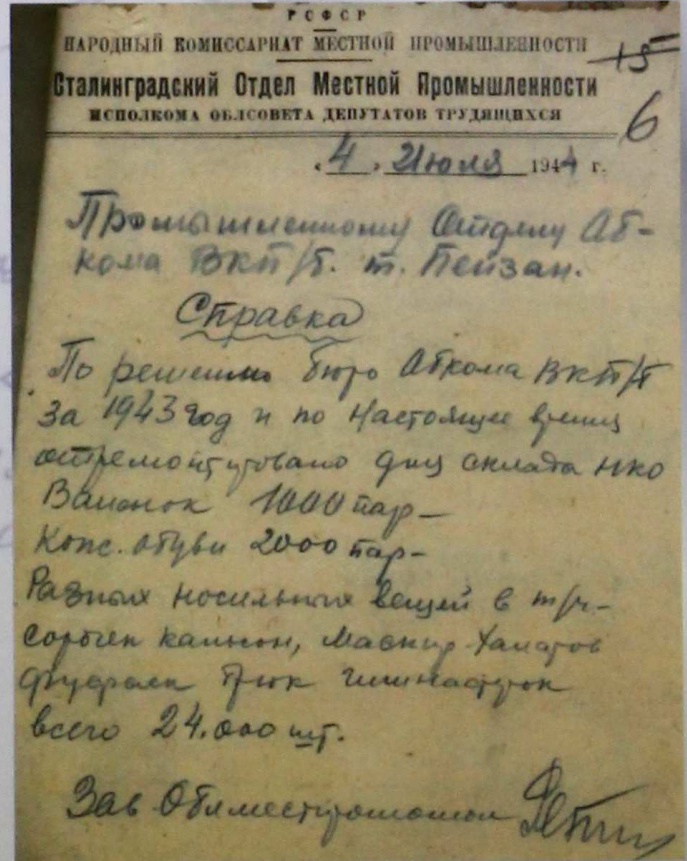 РСФСР
НАРОДНЫЙ КОМИССАРИАТ МЕСТНОЙ ПРОМЫШЛЕННОСТИ
15
Сталинградский Отдел Местной Промышленности
ИСПОЛКОМА ОБЛСОВЕТА ДЕПУТАТОВ ТРУДЯЩИХСЯ
6
«4» Июля 1944 г.
Промышленному Отделу Об-
кома ВКП/б. т. Пейзан.
Справка
По решению бюро Обкома ВКП/б
за 1943 год и по настоящее время
отремонтировано для склада НКО
Валенок 1000 пар-
Кож. обуви 2000 пар-
Разных носильных вещей в т/ч-
сорочек кальсон, Халатов
брюк гимнастерок
всего 24.000 шт.
Зав Облместпромом